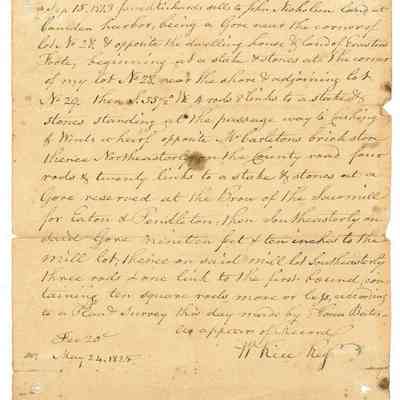 Sep 15. 1823 Jared Richards sells to John Nicholson Land at
Camden harbor, being a Gore near the corner of
lot No 28 & opposite the dwelling house & land of Erastus
Foote, beginning at a stake & stones at the corner
of my lot No 28 near the shore & adjoining lot
No 29. then S. 55½° W 4 rods 8 links to a stake &
stones standing at the passage way to Cushing
& Winds wharf opposite Mr Carletons brick store
thence Northeasterly on the County road four
rods & twenty links to a stake & stones at a
Gore reserved at the Brow of the Sawmill
for Eaton & Pendleton, then Southeasterly on
said Gore nineteen feet & ten inches to the
mill lot, thence on said mill lot Southeasterly
three rods & one link to the first bound, con-
taining ten square rods more or less, according
to a Plan & Survey this day made by
As appears of Record
Fee 20c
May 24. 1825
Wm Rice Regr